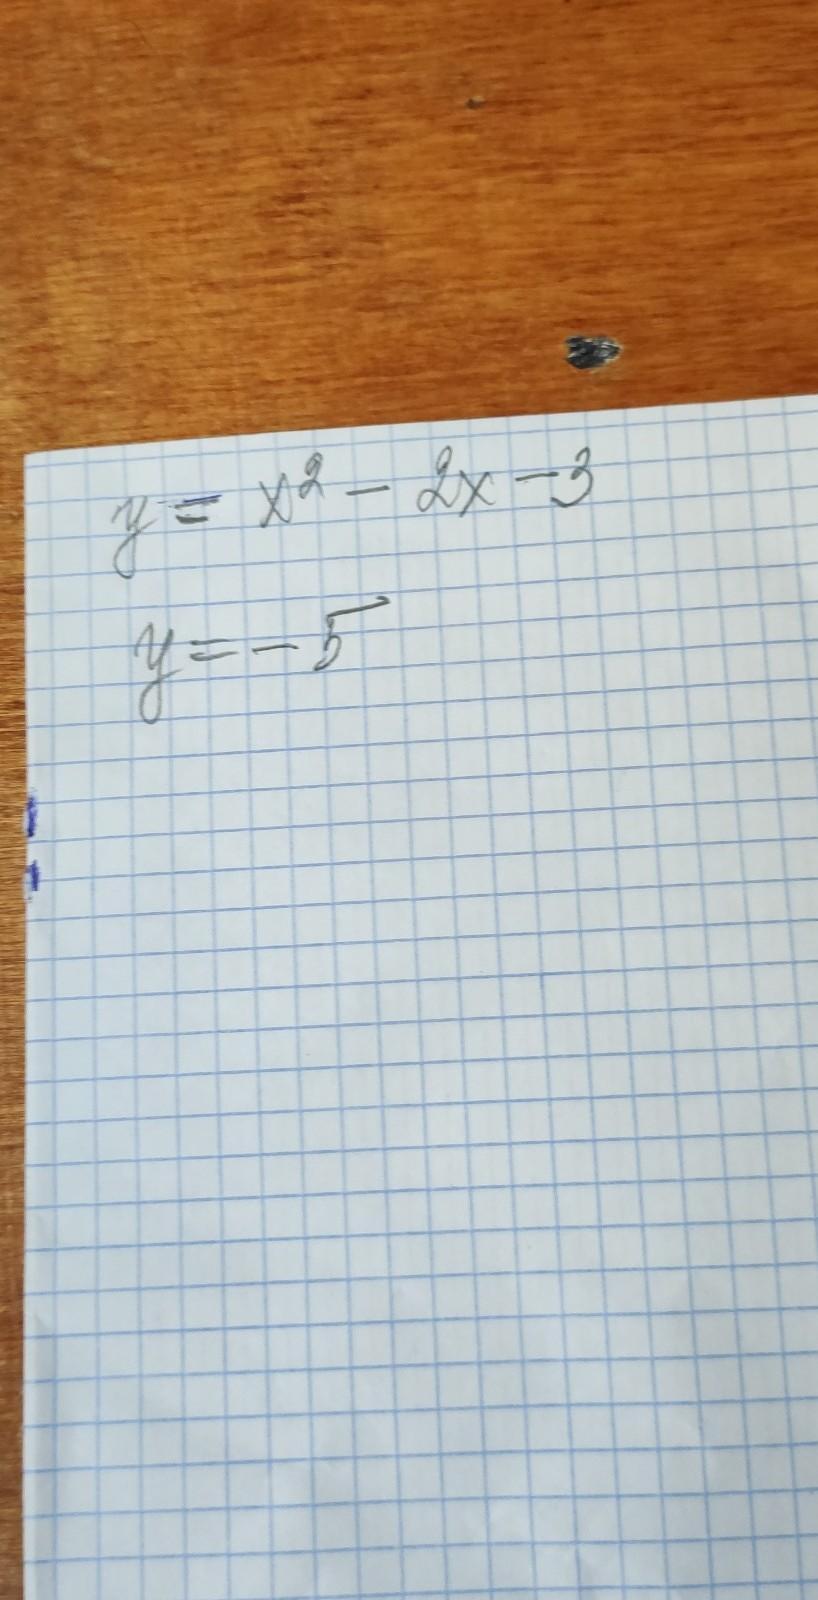 y = x² - 2x - 3
y = - 5